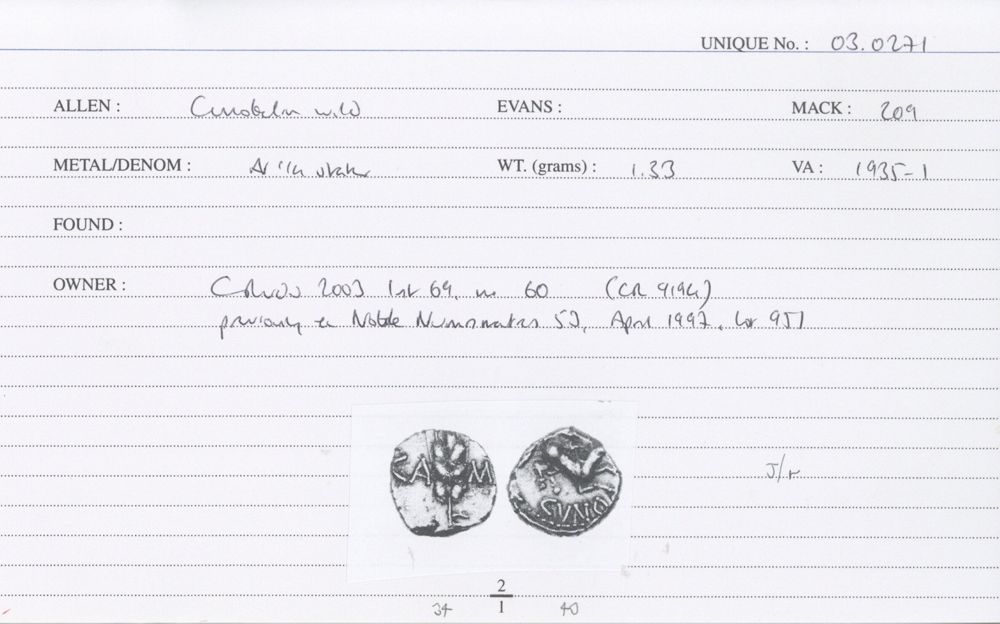 UNIQUE No. : 03.0271
ALLEN : Cunobelin wild EVANS : MACK : 209
METAL/DENOM : AV 1/4 stater WT. (grams) : 1.33 VA : 1935-1
FOUND :
OWNER : 2003 list 69, no 60
previously ex Noble Numismatics 52, April 1997, lot 951
CA M
CVNO
J/r
2
34 1 40